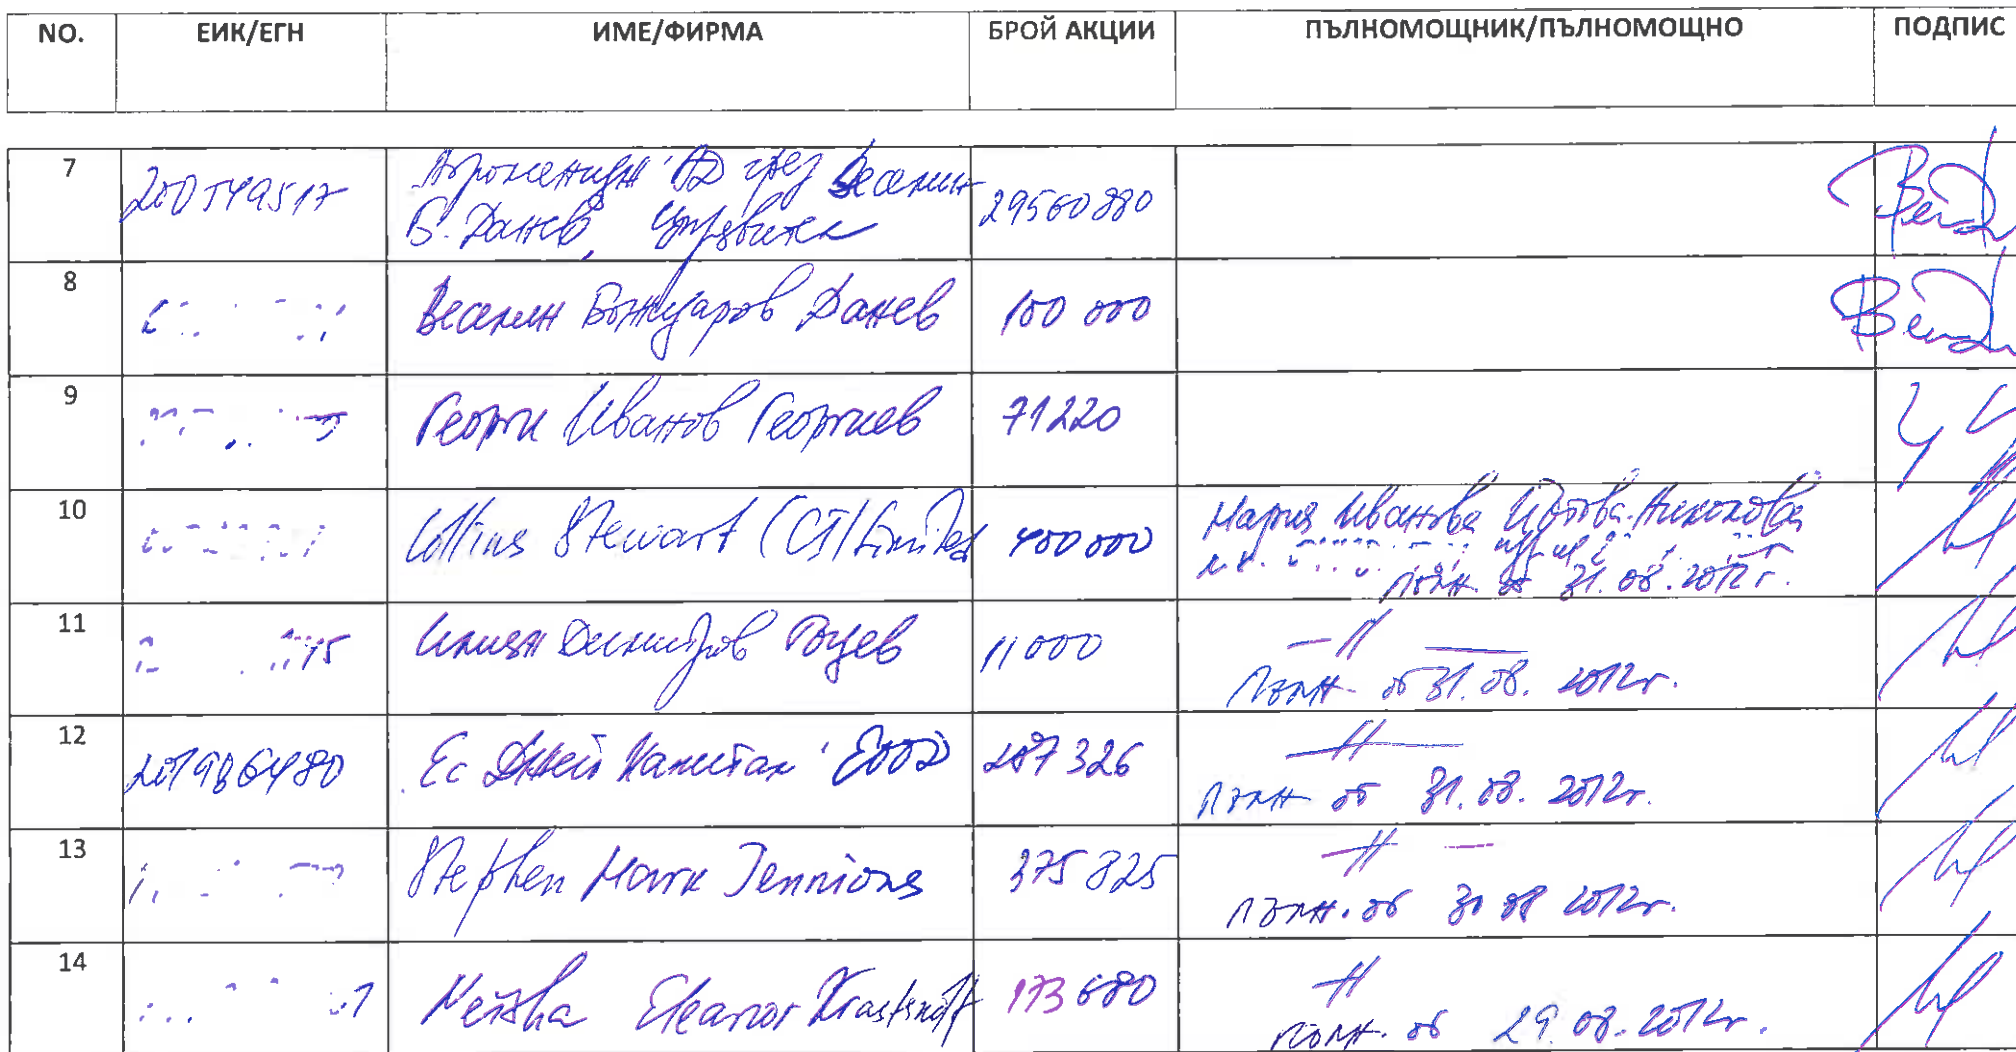 NO. ЕИК/ЕГН ИМЕ/ФИРМА БРОЙ АКЦИИ ПЪЛНОМОЩНИК/ПЪЛНОМОЩНО ПОДПИС
7 200549517 29560880
Б. Данев,
8 Веселин Божидаров Данев 100 000
9 Георги Иванов Георгиев 71220
10 Collins Stewart (CI) Limited 400000 Мария Иванова Йотова-Николова
пълн. от 31.08.2012г.
11 Илиян Димитров Гоцев 11000 —//—
пълн. от 31.08.2012г.
12 201986480 Ес Джей Капитал ЕООД 287326 —//—
пълн. от 31.08.2012г.
13 Stephen Mark Jennions 375825 —//—
пълн. от 31 08 2012г.
14 Eleanor 173680 —//—
пълн. от 29.08.2012г.